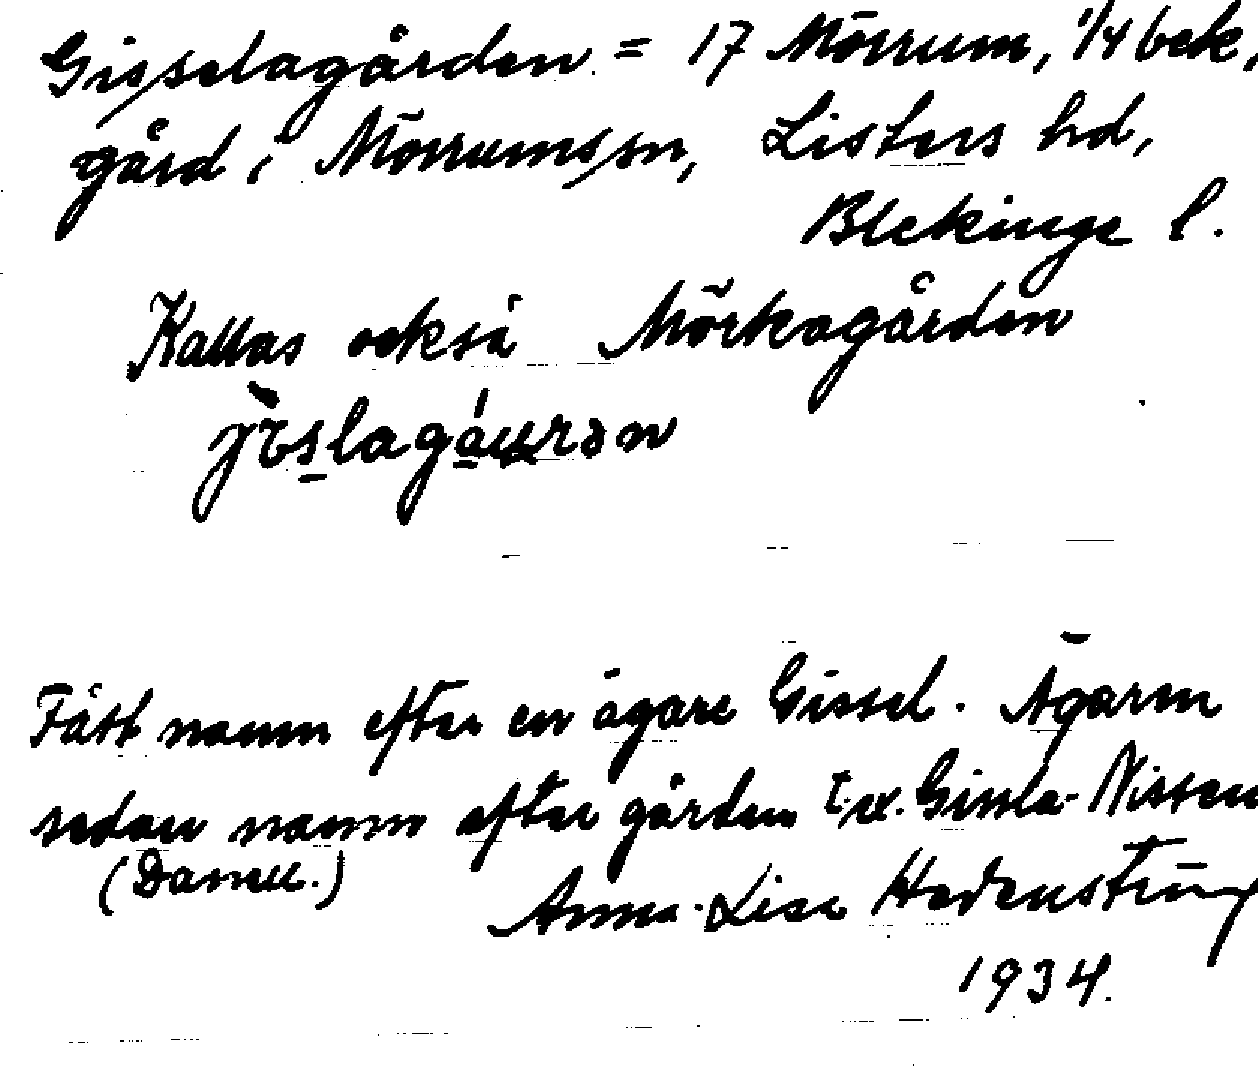 Gisselagården = 17 Mörrum, 1/4 bebe.
gård i Mörrums sn, Listers hd,
Blekinge l.
Kallas också Mörkagården
Fått namn efter en ägare Gissel. Ägaren
sedan namn efter gården t.ex. Gissla-Nissen
Anna-Lisa Hedenstierna
1934.